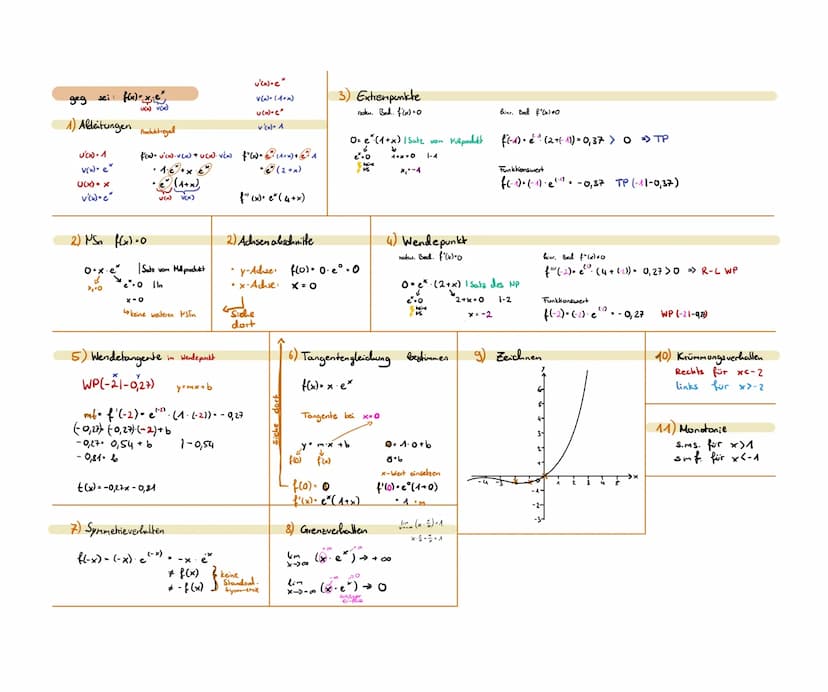 geg sei: f(x) = x · eˣ
u(x) v(x)
u'(x) = eˣ
v(x) = (1+x)
u(x) = eˣ
v'(x) = 1
1) Ableitungen Produktregel
u'(x) = 1
v(x) = eˣ
u(x) = x
v'(x) = eˣ
f'(x) = u'(x) · v(x) + u(x) · v'(x)
= 1 · eˣ + x · eˣ
= eˣ (1+x)
u(x) v(x)
f''(x) = eˣ (1+x) + eˣ · 1
= eˣ (2+x)
3) Extrempunkte
notw. Bed. f'(x) = 0
0 = eˣ (1+x) | Satz vom Nullprodukt
eˣ = 0 1+x = 0 |-1
keine NS x₁ = -1
hinr. Bed f''(x) ≠ 0
f''(-1) = e⁽⁻¹⁾ · (2+(-1)) = 0,37 > 0 ⇒ TP
Funktionswert
f(-1) = (-1) · e⁽⁻¹⁾ = -0,37 TP (-1|-0,37)
2) NSn f(x) = 0
0 = x · eˣ | Satz vom Nullprodukt
x₁ = 0 eˣ = 0 | ln
x = 0
↳ keine weiteren NSTn
2) Achsenabschnitte
• y-Achse: f(0) = 0 · e⁰ = 0
• x-Achse: x = 0
siehe dort
4) Wendepunkt
notw. Bed. f''(x) = 0
0 = eˣ · (2+x) | Satz des NP
eˣ = 0 2+x = 0 |-2
keine NS x = -2
hinr. Bed f'''(x) ≠ 0
Funktionswert
f(-2) = (-2) · e⁽⁻²⁾ = -0,27
5) Wendetangente im Wendepunkt
WP(-2|-0,27) y = mx + b
x y
-0,27 = 0,54 + b |-0,54
-0,81 = b
t(x) = -0,27x - 0,81
6) Tangentengleichung bestimmen
f(x) = x · eˣ
Tangente bei x = 0
y = m · x + b
0 = 1 · 0 + b
0 = b
x-Wert einsetzen
f(0) = 0
f'(x) = eˣ (1+x)
f'(0) = e⁰ (1+0)
= 1 = m
siehe dort
9) Zeichnen
y
6
5
4
3
2
1
-4 -3 -2 -1 1 2 3 4 5 x
-1
-2
-3
10) Krümmungsverhalten
Rechts für x < -2
links für x > -2
11) Monotonie
s.m.s. für x > 1
s m f. für x < -1
7) Symmetrieverhalten
f(-x) = (-x) · e⁽⁻ˣ⁾ = -x · e⁻ˣ
≠ f(x)
≠ -f(x)
keine Standard-symmetrie
8) Grenzverhalten
lim x→∞ (x · eˣ) → +∞
lim x→-∞ (x · eˣ) → 0